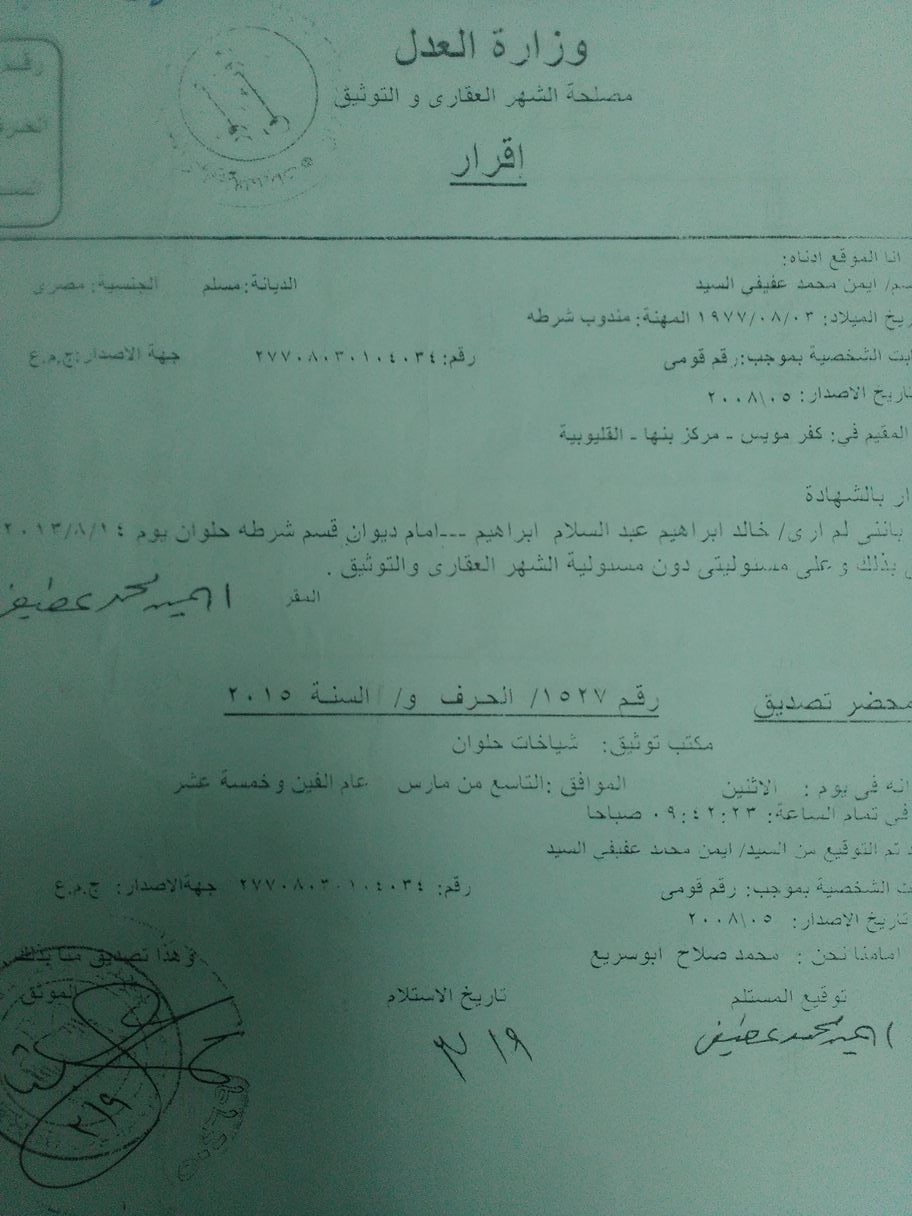 وزارة العدل
مصلحة الشهر العقارى و التوثيق
إقرار
انا الموقع ادناه:
سم/ ايمن محمد عفيفى السيد الديانة: مسلم الجنسية: مصرى
ريخ الميلاد: ١٩٧٧/٠٨/٠٣ المهنة: مندوب شرطه
ابت الشخصية بموجب: رقم قومى رقم: ٢٧٧٠٨٠٣٠١٠٤٠٣٤ جهة الاصدار: ج.م.ع
اريخ الاصدار: ٢٠٠٨\٠٥
المقيم فى: كفر مويس - مركز بنها - القليوبية
ار بالشهادة
باننى لم ارى/ خالد ابراهيم عبد السلام ابراهيم ---امام ديوان قسم شرطه حلوان يوم ٢٠١٣/٨/١٤
بذلك و على مسئوليتى دون مسئولية الشهر العقارى والتوثيق .
المقر ايمن محمد عفيفى
محضر تصديق رقم ١٥٢٧/ الحرف و/ السنة ٢٠١٥
مكتب توثيق: شياخات حلوان
انه فى يوم : الاثنين الموافق :التاسع من مارس عام الفين وخمسة عشر
فى تمام الساعة: ٠٩:٤٢:٢٣ صباحا
د تم التوقيع من السيد/ ايمن محمد عفيفى السيد
ت الشخصية بموجب: رقم قومى رقم: ٢٧٧٠٨٠٣٠١٠٤٠٣٤ جهةالاصدار: ج.م.ع
تاريخ الاصدار: ٢٠٠٨\٠٥
امامنا نحن : محمد صلاح ابوسريع
و هذا تصديق منا بذلك
توقيع المستلم تاريخ الاستلام الموثق
ايمن محمد عفيفى ٣/٩
٣/٩